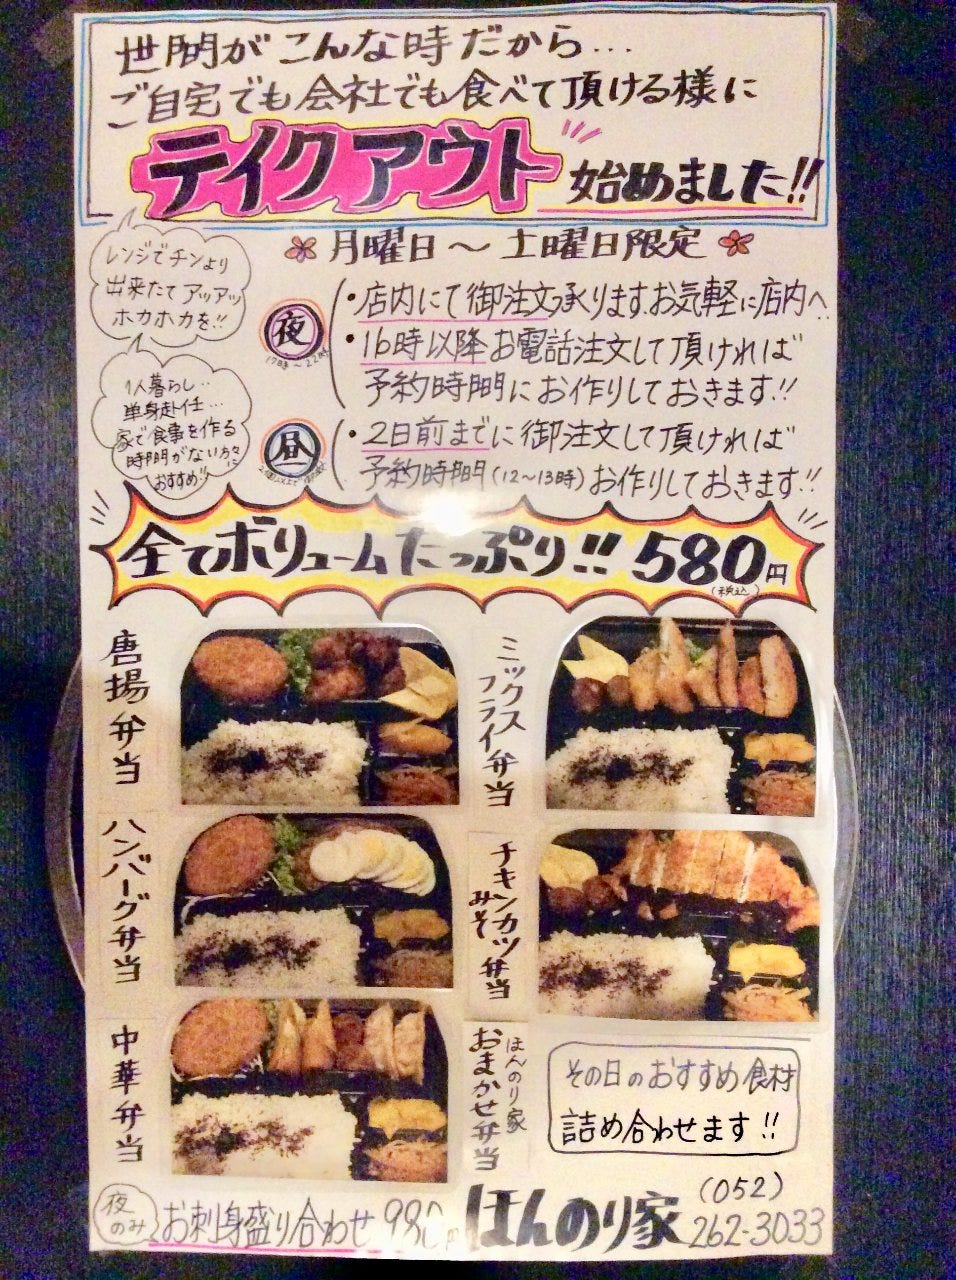 世間がこんな時だから...
ご自宅でも会社でも食べて頂ける様に
テイクアウト始めました!!
月曜日〜土曜日限定
レンジでチンより
出来たてアッアッ
ホカホカを!!
1人暮らし...
単身赴任...
家で食事を作る
時間がない方々に
おすすめ!!
夜
17時〜22時
・店内にて御注文承ります。お気軽に店内へ..
・16時以降お電話注文して頂ければ
予約時間にお作りしておきます!!
昼
・2日前までに御注文して頂ければ
予約時間(12〜13時)お作りしておきます!!
全てボリュームたっぷり!! 580円
(税込)
唐揚弁当
ミックスフライ弁当
ハンバーグ弁当
みそチキンカツ弁当
中華弁当
ほんのり家
おまかせ弁当
その日のおすすめ食材
詰め合わせます!!
夜のみ
お刺身盛り合わせ 980円
ほんのり家
(052)
262-3033